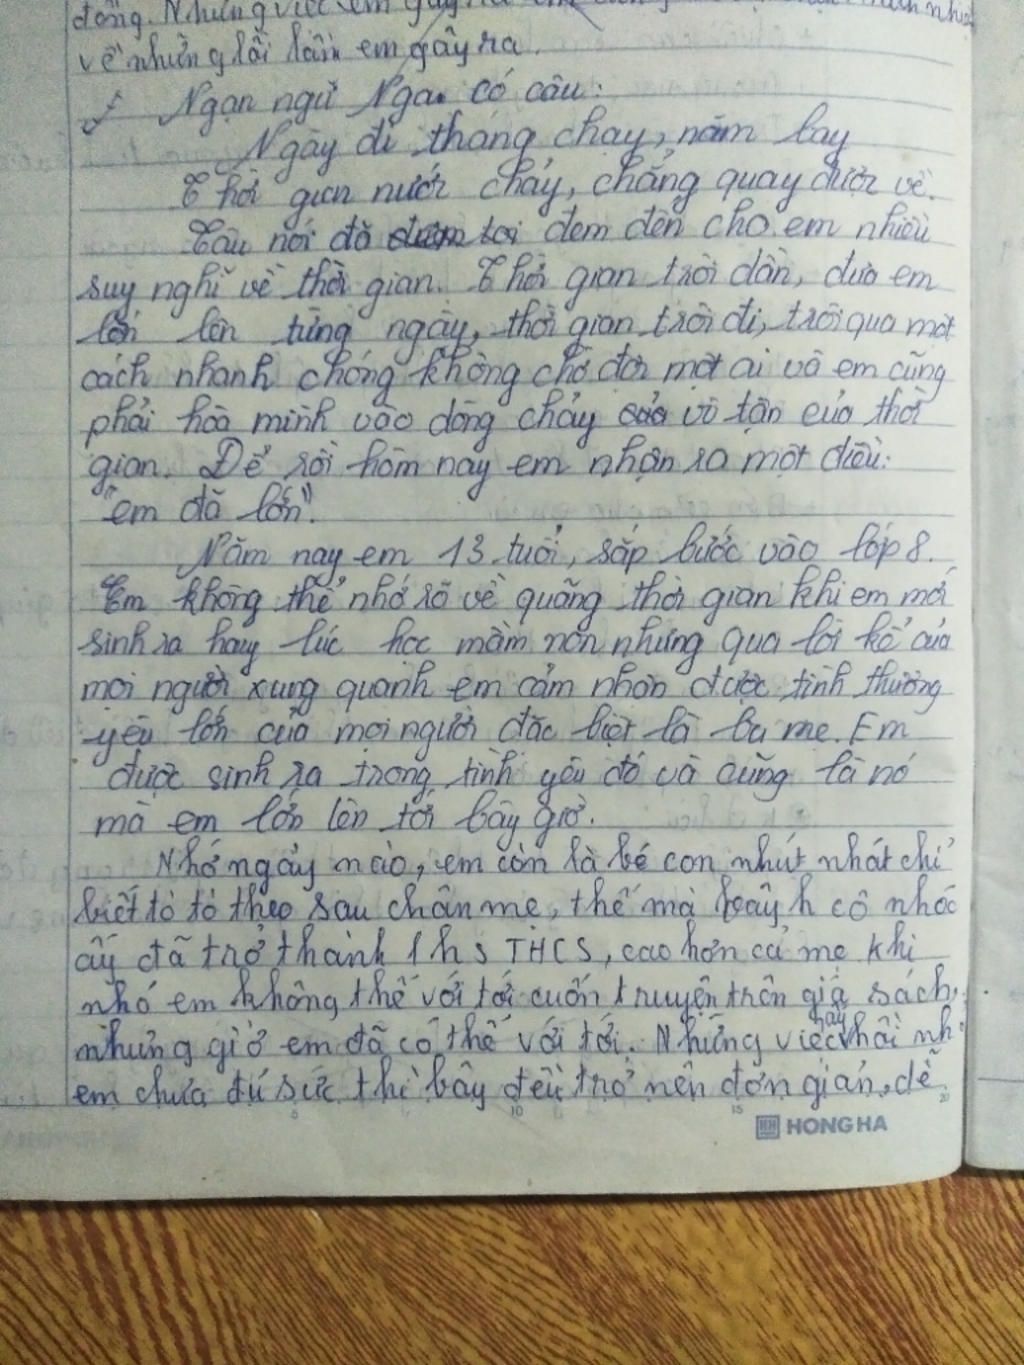 đồng. Những việc em gây ra
về những lỗi lầm em gây ra.
Ngạn ngữ Nga có câu:
Ngày đi tháng chạy, năm bay
Thời gian nước chảy, chẳng quay được về.
Câu nói đã đem đến cho em nhiều
suy nghĩ về thời gian. Thời gian trôi dần, đưa em
lớn lên từng ngày, thời gian trôi đi, trôi qua một
cách nhanh chóng không chờ đợi một ai và em cũng
phải hòa mình vào dòng chảy vô tận của thời
gian. Để rồi hôm nay em nhận ra một điều:
"em đã lớn".
Năm nay em 13 tuổi, sắp bước vào lớp 8.
Em không thể nhớ rõ về quãng thời gian khi em mới
sinh ra hay lúc học mầm non nhưng qua lời kể của
mọi người xung quanh em cảm nhận được tình thương
yêu lớn của mọi người đặc biệt là ba mẹ. Em
được sinh ra trong tình yêu đó và cũng là nó
mà em lớn lên tới bây giờ.
Nhớ ngày nào, em còn là bé con nhút nhát chỉ
biết tò tò theo sau chân mẹ, thế mà cô nhóc
ấy đã trở thành 1 hs THCS, cao hơn cả mẹ khi
nhỏ em không thể với tới cuốn truyện trên giá sách,
nhưng giờ em đã có thể với tới. Những việc hồi nhỏ
em chưa đủ sức thì bây đều trở nên đơn giản, dễ
HONG HA